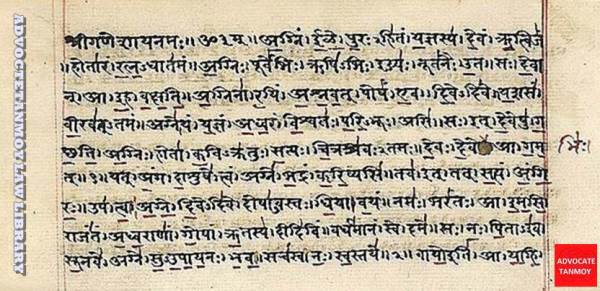 श्रीगणेशायनमः॥ॐ३म्॥ अग्निं। ईळे। पुरःऽहितं। यज्ञस्य। देवं। ऋत्विजं
।होतारं। रत्नऽधातमं॥ अग्निः। पूर्वेभिः। ऋषिऽभिः। ईड्यः। नूतनैः। उत। सः। देवा
न्। आ। इह। वक्षति॥ अग्निना। रयिं। अश्नवत्। पोषं। एव। दिवेऽदिवे। यशसं
वीरवत्ऽतमं॥ अग्ने। यं। यज्ञं। अध्वरं। विश्वतः। परिऽभूः। असि। सः। इत्। देवेषु। ग
च्छति॥ अग्निः। होता। कविऽक्रतुः। सत्यः। चित्रश्रवःऽतमः। देवः। देवे आ। गम
भिः।
त्॥१॥ यत्। अंग। दाशुषे। त्वं। अग्ने। भद्रं। करिष्यसि। तव। इत्। तत्। सत्यं। अंगि
रः॥ उप। त्वा। अग्ने। दिवेऽदिवे। दोषाऽवस्तः। धिया। वयं। नमः। भरंतः। आ। इमसि॥
राजंतं। अध्वराणां। गोपां। ऋतस्य। दीदिविं। वर्धमानं। स्वे। दमे॥ सः। नः। पिताऽइव
सूनवे। अग्ने। सुऽउपायनः। भव। सचस्व। नः। स्वस्तये॥२॥ वायो इति। आ। याहि।
ADVOCATETANMOY LAW LIBRARY
ADVOCATE
TANMOY